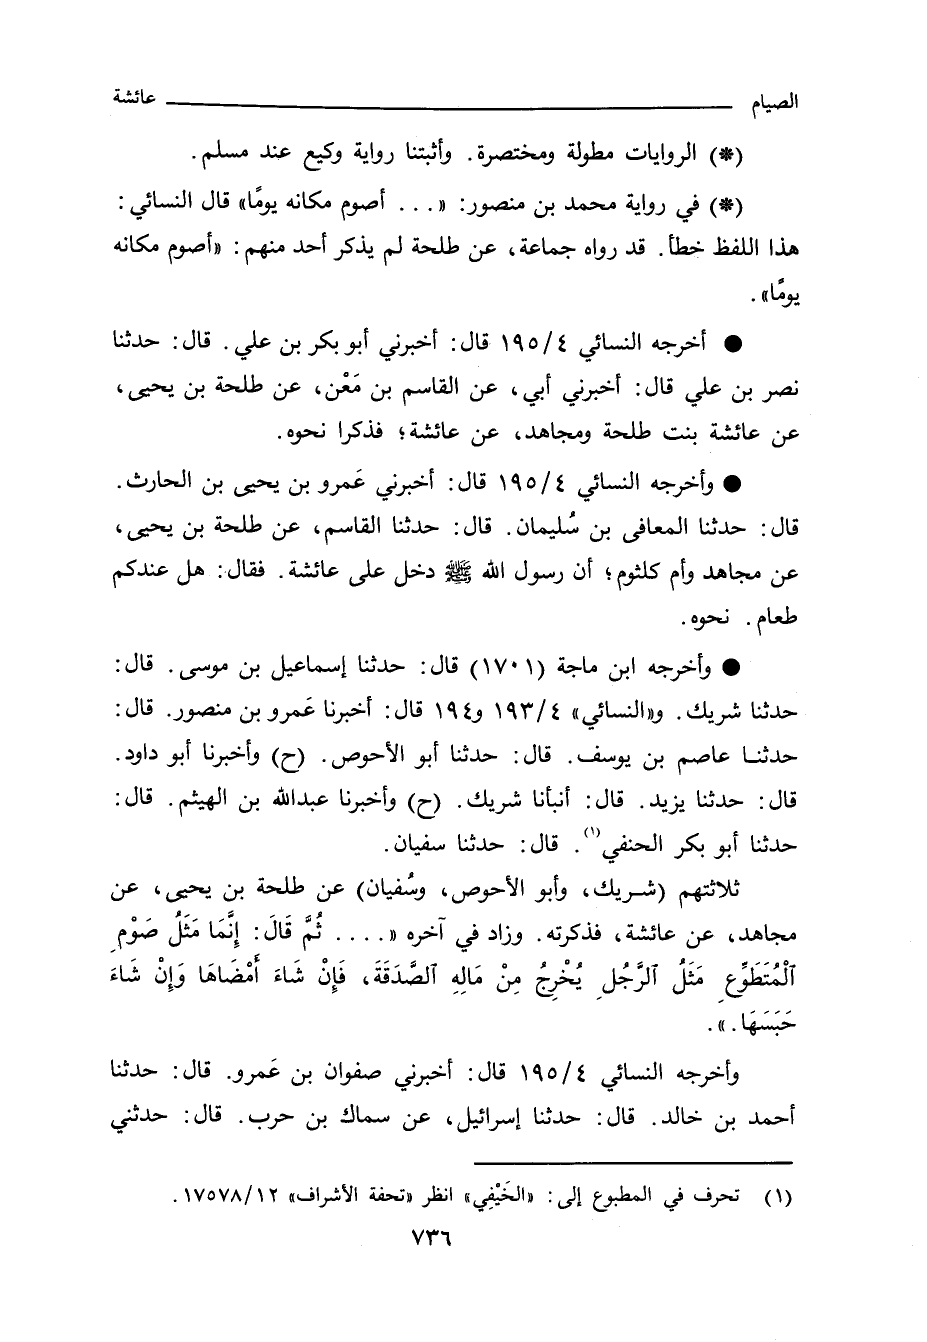 الصيام عائشة
(*) الروايات مطولة ومختصرة. وأثبتنا رواية وكيع عند مسلم.
(*) في رواية محمد بن منصور: «... أصوم مكانه يومًا» قال النسائي:
هذا اللفظ خطأ. قد رواه جماعة، عن طلحة لم يذكر أحد منهم: «أصوم مكانه
يومًا».
● أخرجه النسائي ٤/١٩٥ قال: أخبرني أبو بكر بن علي. قال: حدثنا
نصر بن علي قال: أخبرني أبي، عن القاسم بن مَعْن، عن طلحة بن يحيى،
عن عائشة بنت طلحة ومجاهد، عن عائشة؛ فذكرا نحوه.
● وأخرجه النسائي ٤/١٩٥ قال: أخبرني عَمرو بن يحيى بن الحارث.
قال: حدثنا المعافى بن سُليمان. قال: حدثنا القاسم، عن طلحة بن يحيى،
عن مجاهد وأم كلثوم؛ أن رسول الله ﷺ دخل على عائشة. فقال: هل عندكم
طعام. نحوه.
● وأخرجه ابن ماجة (١٧٠١) قال: حدثنا إسماعيل بن موسى. قال:
حدثنا شريك. و«النسائي» ٤/١٩٣ و١٩٤ قال: أخبرنا عَمرو بن منصور. قال:
حدثنا عاصم بن يوسف. قال: حدثنا أبو الأحوص. (ح) وأخبرنا أبو داود.
قال: حدثنا يزيد. قال: أنبأنا شريك. (ح) وأخبرنا عبدالله بن الهيثم. قال:
حدثنا أبو بكر الحنفي(١). قال: حدثنا سفيان.
ثلاثتهم (شريك، وأبو الأحوص، وسُفيان) عن طلحة بن يحيى، عن
مجاهد، عن عائشة، فذكرته. وزاد في آخره «.... ثُمَّ قَالَ: إِنَّمَا مَثَلُ صَوْمِ
ٱلْمُتَطَوِّعِ مَثَلُ ٱلرَّجُلِ يُخْرِجُ مِنْ مَالِهِ ٱلصَّدَقَةَ، فَإِنْ شَاءَ أَمْضَاهَا وَإِنْ شَاءَ
حَبَسَهَا.».
وأخرجه النسائي ٤/١٩٥ قال: أخبرني صفوان بن عَمرو. قال: حدثنا
أحمد بن خالد. قال: حدثنا إسرائيل، عن سماك بن حرب. قال: حدثني
(١) تحرف في المطبوع إلى: «الخَيْفِي» انظر «تحفة الأشراف» ١٢/١٧٥٧٨.
٧٣٦